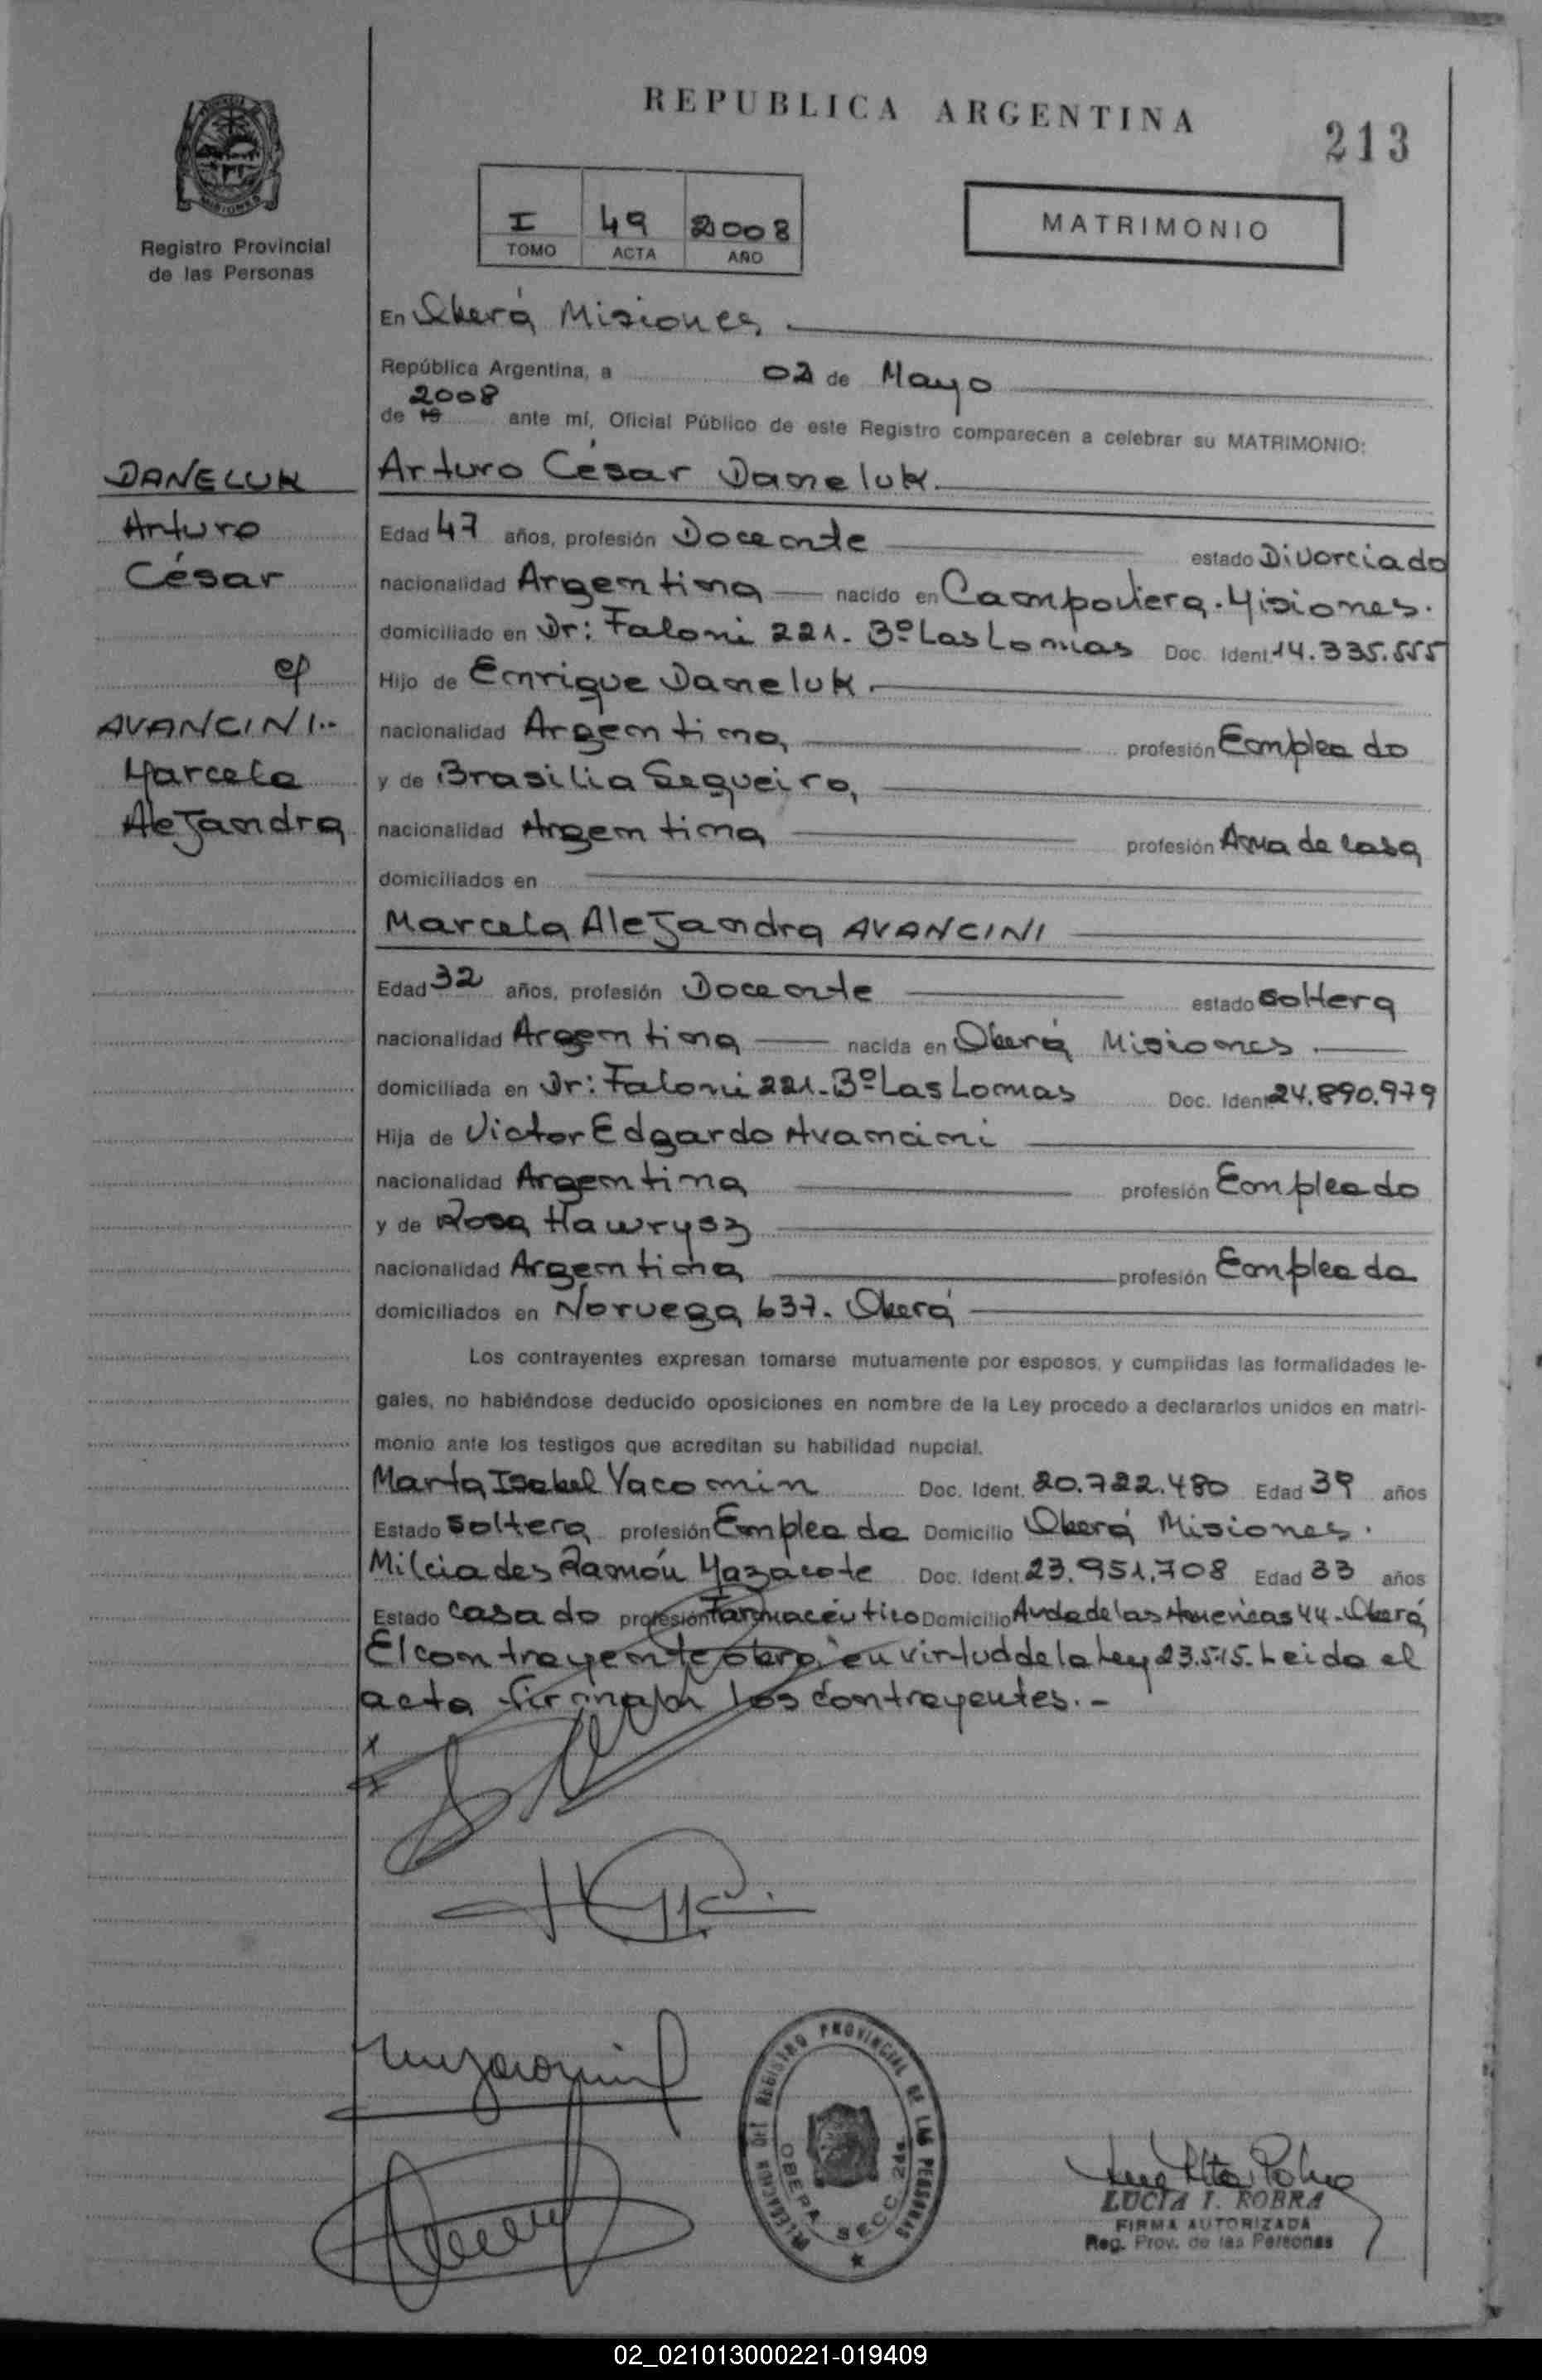 REPUBLICA ARGENTINA
213
MISIONES
Registro Provincial
de las Personas
I 49 2008
TOMO ACTA AÑO
MATRIMONIO
En Oberá Misiones
República Argentina, a 02 de Mayo
2008
de 19 ante mí, Oficial Público de este Registro comparecen a celebrar su MATRIMONIO:
DANELUK
Arturo
César
c/
AVANCINI.-
Marcela
Alejandra
Arturo César Daneluk.
Edad 47 años, profesión Docente estado Divorciado
nacionalidad Argentina nacido en Campo Viera. Misiones.
domiciliado en Dr: Faloni 221. Bº Las Lomas Doc. Ident. 14.335.555
Hijo de Enrique Daneluk.
nacionalidad Argentina, profesión Empleado
y de Brasilia Sequeira,
nacionalidad Argentina profesión Ama de casa
domiciliados en
Marcela Alejandra AVANCINI
Edad 32 años, profesión Docente estado Soltera
nacionalidad Argentina nacida en Oberá Misiones.
domiciliada en Dr: Faloni 221. Bº Las Lomas Doc. Ident. 24.890.979
Hija de Victor Edgardo Avancini
nacionalidad Argentina profesión Empleado
y de Rosa Hawrysz
nacionalidad Argentina profesión Empleada
domiciliados en Noruega 637. Oberá
Los contrayentes expresan tomarse mutuamente por esposos, y cumplidas las formalidades le-
gales, no habiéndose deducido oposiciones en nombre de la Ley procedo a declararlos unidos en matri-
monio ante los testigos que acreditan su habilidad nupcial.
Marta Isabel Yacomin Doc. Ident. 20.722.480 Edad 39 años
Estado Soltera profesión Empleada Domicilio Oberá Misiones.
Milciades Ramón Mazacote Doc. Ident. 23.951.708 Edad 33 años
Estado Casado profesión Farmacéutico Domicilio Avda de las Americas 44. Oberá
El contrayente obra en virtud de la Ley 23.515. Leida el
acta firman los contrayentes. -
DELEGACION DEL REGISTRO PROVINCIAL DE LAS PERSONAS
OBERA SECC 2da
LUCIA I. ROBRA
FIRMA AUTORIZADA
Reg. Prov. de las Personas
02_021013000221-019409